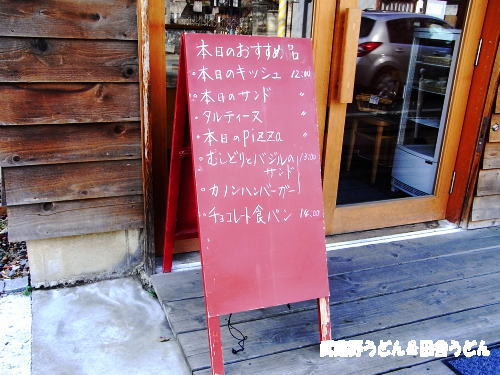 本日のおすすめ品
・本日のキッシュ 12:00
・本日のサンド 〃
・タルティーヌ 〃
・本日のpizza 〃
・むしどりとバジルの
サンド 13:00
・カノンハンバーガー
・チョコレート食パン 14:00
武蔵野うどん&田舎うどん